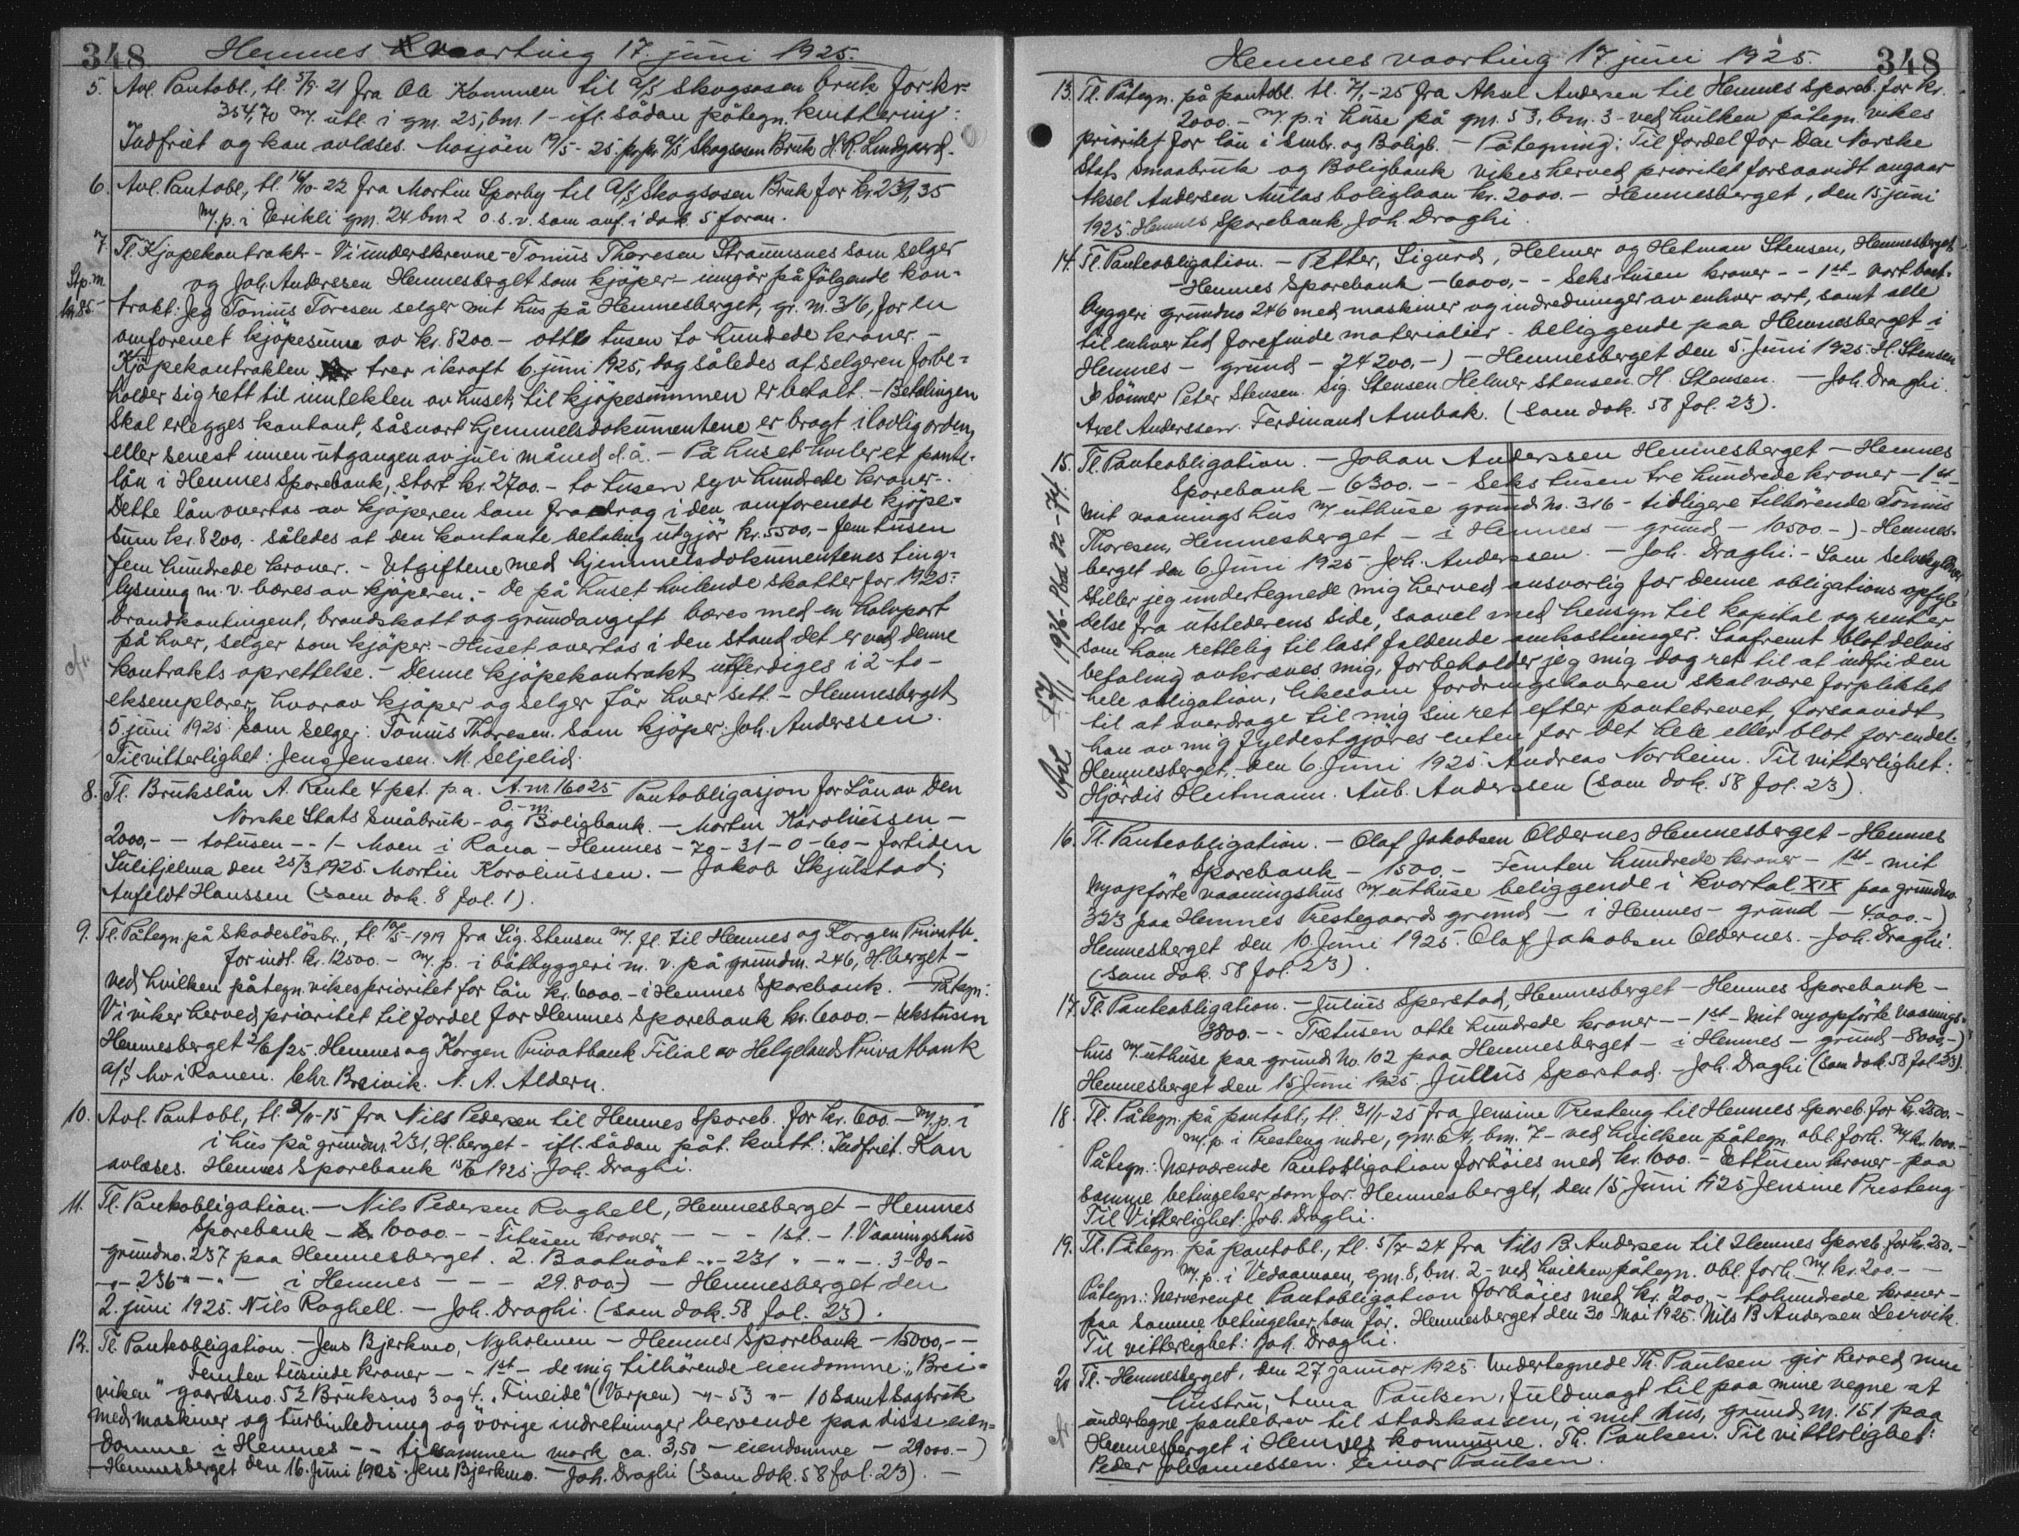 348
Hemnes vaarting 17. juni 1925.
5. Avl. Pantobl., tl. 5/9-21 fra Ole Kommen til A/S Skogsosen bruk for kr.
354,70 m/ utl. i gm. 25, bm. 1 - ifl. sådan påtegn. kvittering:
Indfriet og kan avlæses. Mosjøen 19/5-25. pr.pr. A/S Skogsosen Bruk H. R. Lundgaard.
6. Avl. Pantobl., tl. 16/10-22 fra Martin Sporby til A/S Skogsosen Bruk for kr. 239,35
m/ p. i Eerikli gm. 24 bm 2 o.s.v. som anf. i dok. 5 foran.
7. Tl. Kjøpekontrakt - Vi underskrevne - Tonius Thoresen Straumsnes som selger
Stp. m. kr. 85.-
og Joh. Anderssen Hemnesberget som kjöper - inngår på fölgende kon-
trakt: Jeg Tonius Toresen selger mit hus på Hemnesberget, gr. nr. 316, for en
omforenet kjöpesum av kr. 8200.- otte tusen to hundrede kroner.-
Kjöpekontrakten trer i kraft 6. juni 1925, dog således at selgeren forbe-
holder sig rett til inntekten av huset, til kjöpesummen er betalt. - Betalingen
skal erlegges kontant, såsnart hjemmelsdokumentene er bragt i lovlig orden,
eller senest innen utgangen av juli måned d.å. - På huset hviler et pante-
lån i Hemnes Sparebank, stort kr. 2700.- to tusen syv hundrede kroner.-
Dette lån overtas av kjöperen som fradrag i den omforenede kjöpe-
sum kr. 8200,- således at den kontante betaling utgjör kr. 5500,- fem tusen
fem hundrede kroner. - Utgiftene med hjemmelsdokumentenes ting-
lysning m.v. bæres av kjöperen. - De på huset hvilende skatter for 1925:
brandkontingent, brandskatt og grundavgift bæres med en halvpart
på hver, selger som kjöper. - Huset overtas i den stand det er ved denne
kontrakts oprettelse. - Denne kjöpekontrakt utferdiges i 2 - to -
eksemplarer, hvorav kjöper og selger får hver sett. - Hemnesberget
5. juni 1925. Som selger: Tonius Thoresen. Som kjöper: Joh. Anderssen.
Til vitterlighet: Jens Jenssen. M. Seljelid.
8. Tl. Brukslån A. Rente 4 pct. p.a. A. nr. 16025 Pantobligasjon for Lån av Den
Norske Stats Småbruk- og Boligbank. - Morten Karoliussen -
2000,- - totusen - - 1 - Moen i Rana - Hemnes - 70-31-0-60 - fortiden
Sulitjelma den 25/3 1925. Morten Karoliussen. - Jakob Skjulstad.
Anfeldt Hanssen (som dok. 8 fol. 1).
9. Tl. Påtegn. på Skadeslösbr., tl. 10/5-1919 fra Sig. Stensen m/ fl. til Hemnes og Korgen Privatb.
for intl. kr. 12500.- m/ p. i båtbyggeri m.v. på grundnr. 246, H.berget -
ved hvilken påtegn. vikes prioritet for lån kr. 6000.- i Hemnes Sparebank. - Påtegn.:
Vi viker herved prioritet til fordel for Hemnes Sparebank kr. 6000.- sekstusen
Hemnesberget 2/6/25. Hemnes og Korgen Privatbank Filial av Helgelands Privatbank
A/S Mo i Ranen. Chr. Breivik. N. A. Aldern.
10. Avl. Pantobl., tl. 2/11-15 fra Nils Pedersen til Hemnes Spareb. for kr. 600.- m/ p. i
i hus på grundnr. 231, H.berget - ifl. sådan påt. kvitt.: Indfriet. Kan
avlæses. Hemnes Sparebank 15/6 1925. Joh. Draghi.
11. Tl. Panteobligation. - Nils Pedersen Roghell, Hemnesberget - Hemnes
Sparebank - kr. 10000.- - Titusen kroner - - - 1st. - 1. Vaaningshus
grundno. 237 paa Hemnesberget. 2. Baatnöst -"- 231 " -"-. 3. do -
-"- 236 -"- - i Hemnes - - - 29.800.-) - Hemnesberget den
2. juni 1925. Nils Roghell. - Joh. Draghi. (som dok. 58 fol. 23).
12. Tl. Panteobligation. - Jens Bjerkmo, Nyholmen - Hemnes Sparebank - 15000,- -
Femten tusinde kroner - - 1st - de mig tilhörende eiendomme: „Brei-
viken" gaardsno. 52 Bruksno 3 og 4. „Fineide" (Varpen) -"- 53 " - 10 samt Sagbruk
med maskiner og turbinledning og övrige indretninger beroende paa disse eien-
domme i Hemnes - - tilsammen mark ca. 3,50 - eiendomme - 29000.-)
Hemnesberget den 16. Juni 1925. Jens Bjerkmo. - Joh. Draghi (som dok. 58 fol. 23). -
Hemnes vaarting 17 juni 1925.
348
13. Tl. Påtegn. på pantobl. tl. 7/1-25 fra Aksel Andersen til Hemnes Spareb. for kr.
2000.- m/ p. i huse på gm. 53, bm. 3 - ved hvilken påtegn. vikes
prioritet for lån i Smbr. og Boligb. - Påtegning: Til fordel for Den Norske
Stats Smaabruk og Boligbank vikes herved prioritet forsaavidt angaar
Aksel Andersen Milas boliglaan kr. 2000.- Hemnesberget, den 15 juni
1925. Hemnes Sparebank Joh. Draghi.
14. Tl. Panteobligation. - Petter, Sigurd, Helmer og Hetman Stensen, Hemnesberget
- Hemnes Sparebank - 6000,- - Seks tusen kroner - - 1st - vort baat-
byggeri grundno 246 med maskiner og indredninger av enhver art, samt alle
til enhver tid forefinde materialier - beliggende paa Hemnesberget i
Hemnes - grund - 24200,-) - Hemnesberget den 5. Juni 1925. H. Stensen
& Sönner Peter Stensen. Sig. Stensen. Helmer Stensen. H. Stensen. - Joh. Draghi.
Axel Anderssen. Ferdinand Ambak. (som dok. 58 fol. 23).
15. Tl. Panteobligation. - Johan Anderssen Hemnesberget - Hemnes
Sparebank - 6300.- - Seks tusen tre hundrede kroner - 1st -
mit vaaningshus m/ uthuse grund No. 316 - tidligere tilhörende Tonius
Thoresen, Hemnesberget - i Hemnes - grund - 10500.-) - Hemnes-
berget den 6 Juni 1925 Joh. Anderssen. - Joh. Draghi. - Som Selvskyldner
stiller jeg undertegnede mig herved ansvarlig for denne obligations opfyl-
delse fra utstederens side, saavel med hensyn til kapital og renter
som ham rettelig til last faldende omkostninger. Saafremt blot delvis
betaling avkræves mig, forbeholder jeg mig dog ret til at indfri den
hele obligation, likesom fordringshaveren skal være forpliktet
til at overdrage til mig sin ret efter pantebrevet, forsaavidt
han av mig fyldestgjøres enten for det hele eller blot for endel.
Hemnesberget, den 6 Juni 1925. Andreas Norheim. Til vitterlighet:
Hjördis Heitmann. Aub. Anderssen (som dok. 58 fol. 23).
16. Tl. Panteobligation. - Olaf Jakobsen Oldernes Hemnesberget - Hemnes
Sparebank - 1500.- - Femten hundrede kroner - 1st - mit
nyopförte vaaningshus m/ uthuse beliggende i kvartal XIX paa grundno
323 paa Hemnes Prestegaards grund - i Hemnes - grund - 4000.-)
Hemnesberget den 10. Juni 1925. Olaf Jakobsen Oldernes. - Joh. Draghi.
(som dok. 58 fol. 23).
17. Tl. Panteobligation. - Julius Sperstad, Hemnesberget - Hemnes Sparebank -
3800.- - Tretusen otte hundrede kroner - - 1st - Mit nyopförte vaanings-
hus m/ uthuse paa grunds No. 102 paa Hemnesberget - i Hemnes - grund - 8000,-)
Hemnesberget den 15 Juni 1925 Julius Sperstad. - Joh. Draghi (som dok. 58 fol 23).
18. Tl. Påtegn. på pantobl., tl. 31/1-25 fra Jensine Presteng til Hemnes Spareb. for kr. 2500.-
m/ p. i Presteng indre, gm. 64, bm. 7 - ved hvilken påtegn. obl. forh. m/ kr. 1000.-
Påtegn.: Nærværende Pantobligation forhöies med kr. 1000.- Ettusen kroner - paa
samme betingelser som før. Hemnesberget, den 15 Juni 1925 Jensine Presteng
Til Vitterlighet: Joh. Draghi.
19. Tl. Påtegn. på pantobl., tl. 5/7-24 fra Nils B. Andersen til Hemnes Spareb. for kr. 250.-
m/ p. i Vedaamoen, gm. 8, bm. 2 - ved hvilken påtegn. obl. forh. m/ kr. 200.- -
Påtegn.: Nerverende Pantobligation forhöies med kr. 200,- - tohundrede kroner -
paa samme betingelser som för. Hemnesberget den 30 Mai 1925. Nils B Andersen Leirvik.
Til vitterlighet: Joh. Draghi.
20 Tl. Hemnesberget, den 27 januar 1925. Undertegnede Th. Paulsen gir herved min
hustru, Anna Paulsen, fuldmagt til paa mine vegne at
undertegne pantebrev til stadskassen, i mit hus, grunds nr. 151 paa
Hemnesberget i Hemnes kommune. Th. Paulsen. Til vitterlighet:
Peder Johannessen. Einar Paulsen.